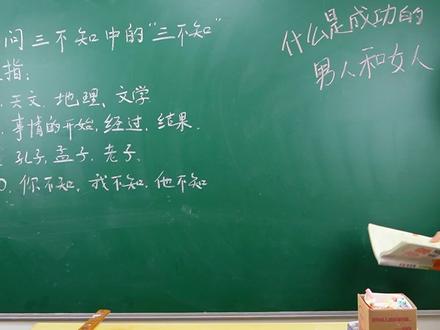 问三不知中的"三不知"
指:
天文、地理、文学
事情的开始、经过、结果.
孔子、孟子、老子.
D. 你不知、我不知、他不知
什么是成功的
男人和女人